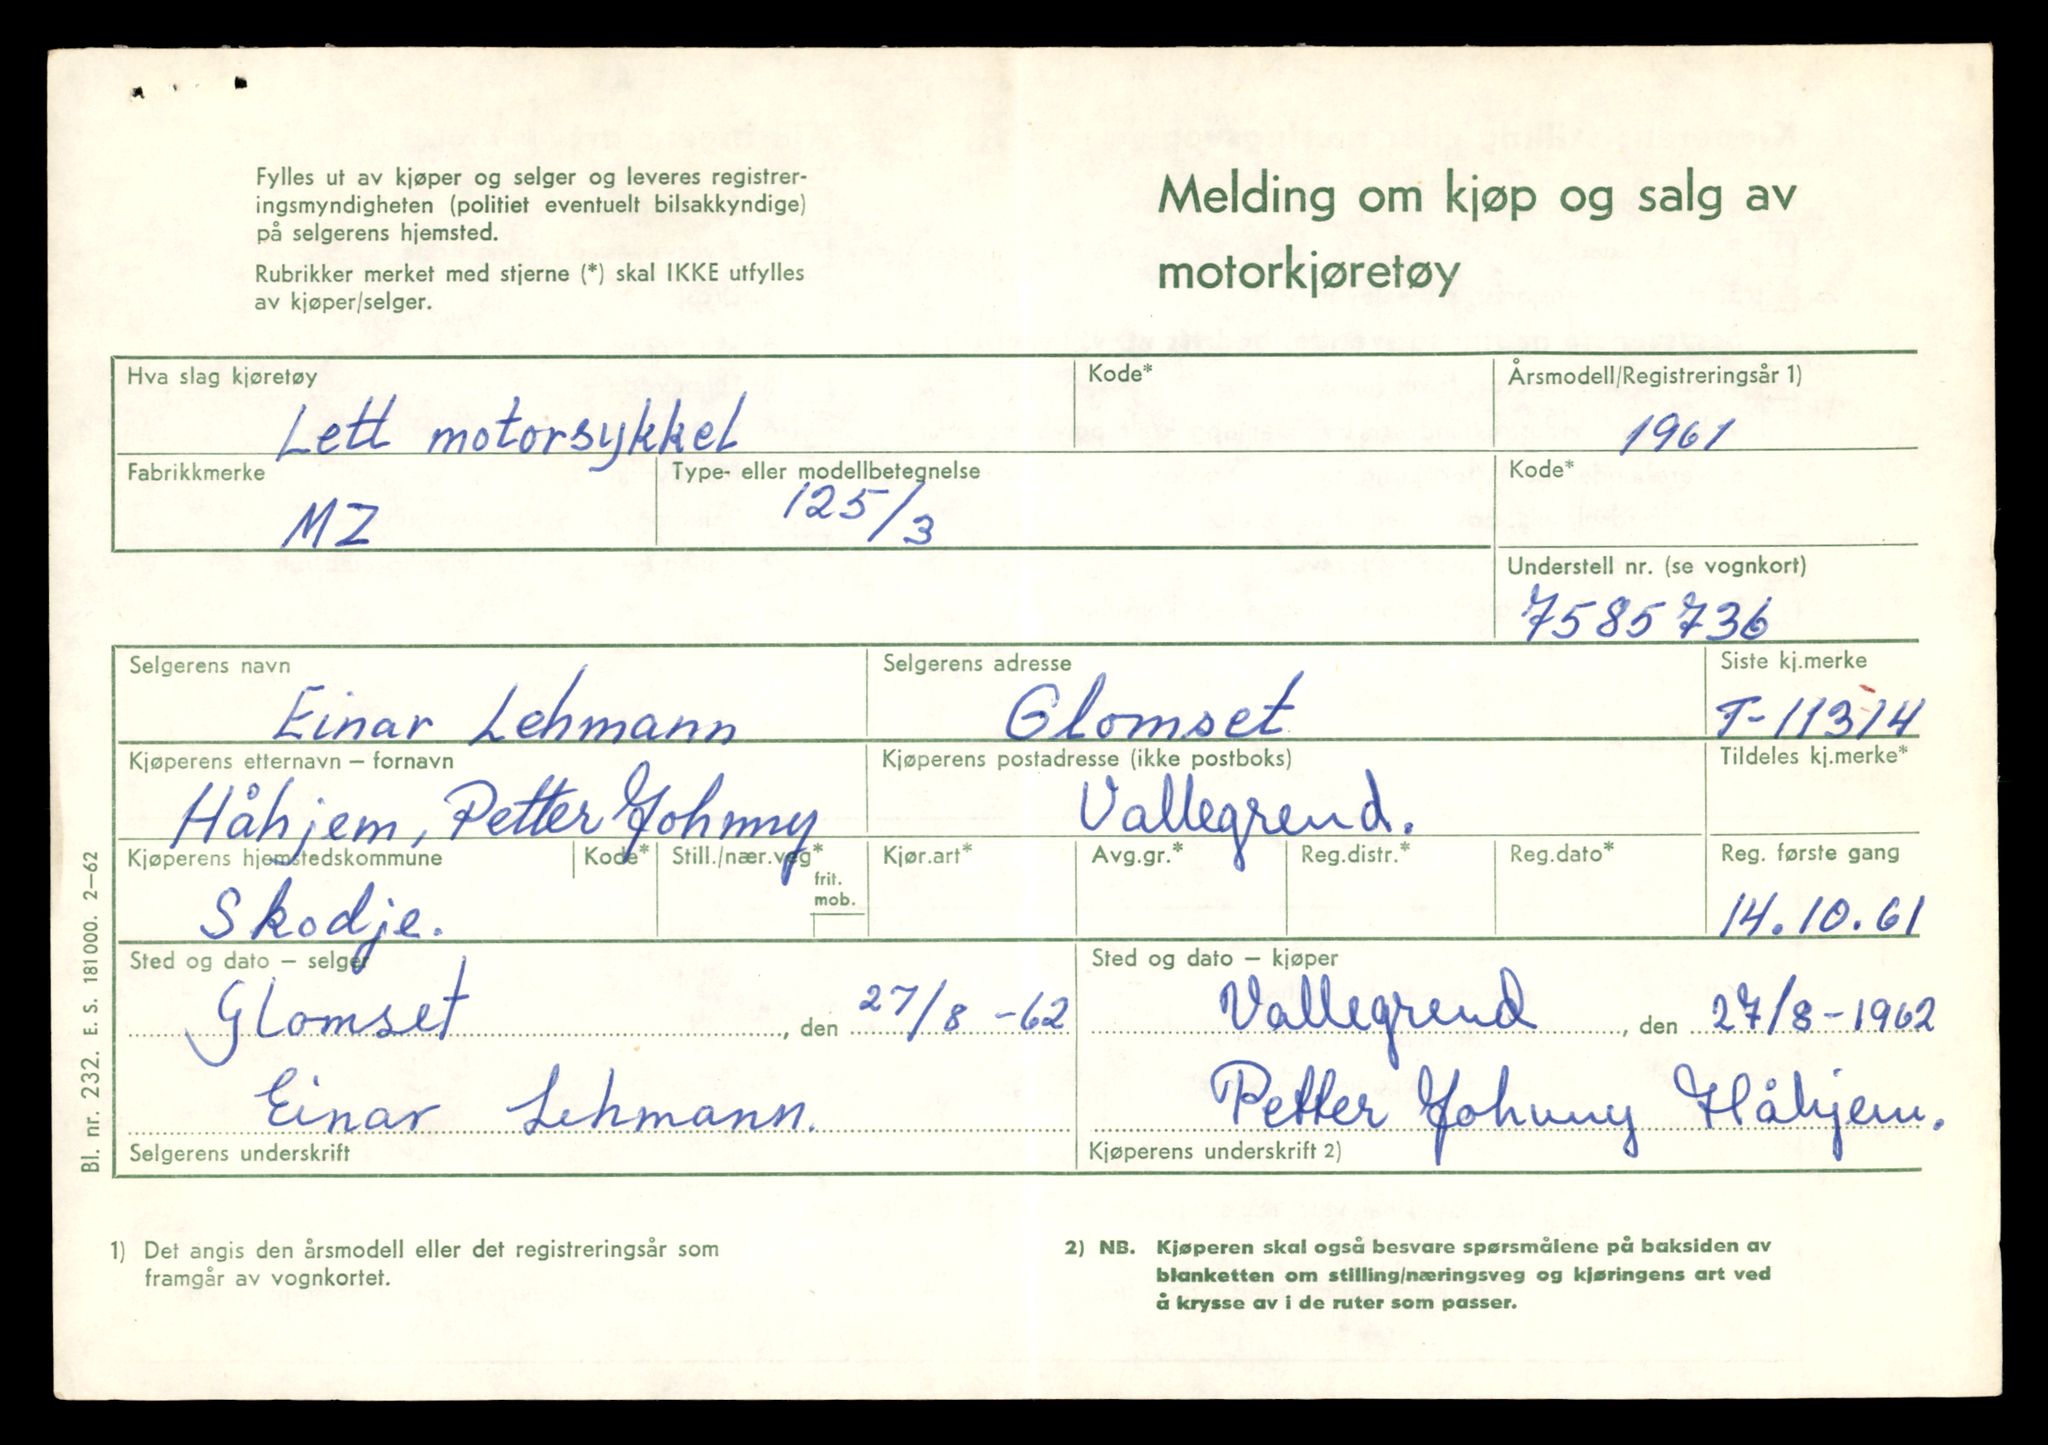 Fylles ut av kjøper og selger og leveres registrer-
ingsmyndigheten (politiet eventuelt bilsakkyndige)
på selgerens hjemsted.
Rubrikker merket med stjerne (*) skal IKKE utfylles
av kjøper/selger.
Melding om kjøp og salg av
motorkjøretøy
Hva slag kjøretøy
Lett motorsykkel
Kode*
Årsmodell/Registreringsår 1)
1961
Fabrikkmerke
MZ
Type- eller modellbetegnelse
125/3
Kode*
Understell nr. (se vognkort)
7585736
Selgerens navn
Einar Lehmann
Selgerens adresse
Glomset
Siste kj.merke
T-11314
Kjøperens etternavn – fornavn
Håhjem, Petter Johnny
Kjøperens postadresse (ikke postboks)
Vallegrend.
Tildeles kj.merke*
Kjøperens hjemstedskommune
Skodje.
Kode*
Still./nær.veg*
frit.
mob.
Kjør.art*
Avg.gr.*
Reg.distr.*
Reg.dato*
Reg. første gang
14.10.61
Sted og dato – selger
Glomset, den 27/8 -62
Einar Lehmann.
Selgerens underskrift
Sted og dato – kjøper
Vallegrend, den 27/8-1962
Petter Johnny Håhjem.
Kjøperens underskrift 2)
Bl. nr. 232. E. S. 181000. 2–62
1) Det angis den årsmodell eller det registreringsår som
framgår av vognkortet.
2) NB. Kjøperen skal også besvare spørsmålene på baksiden av
blanketten om stilling/næringsveg og kjøringens art ved
å krysse av i de ruter som passer.